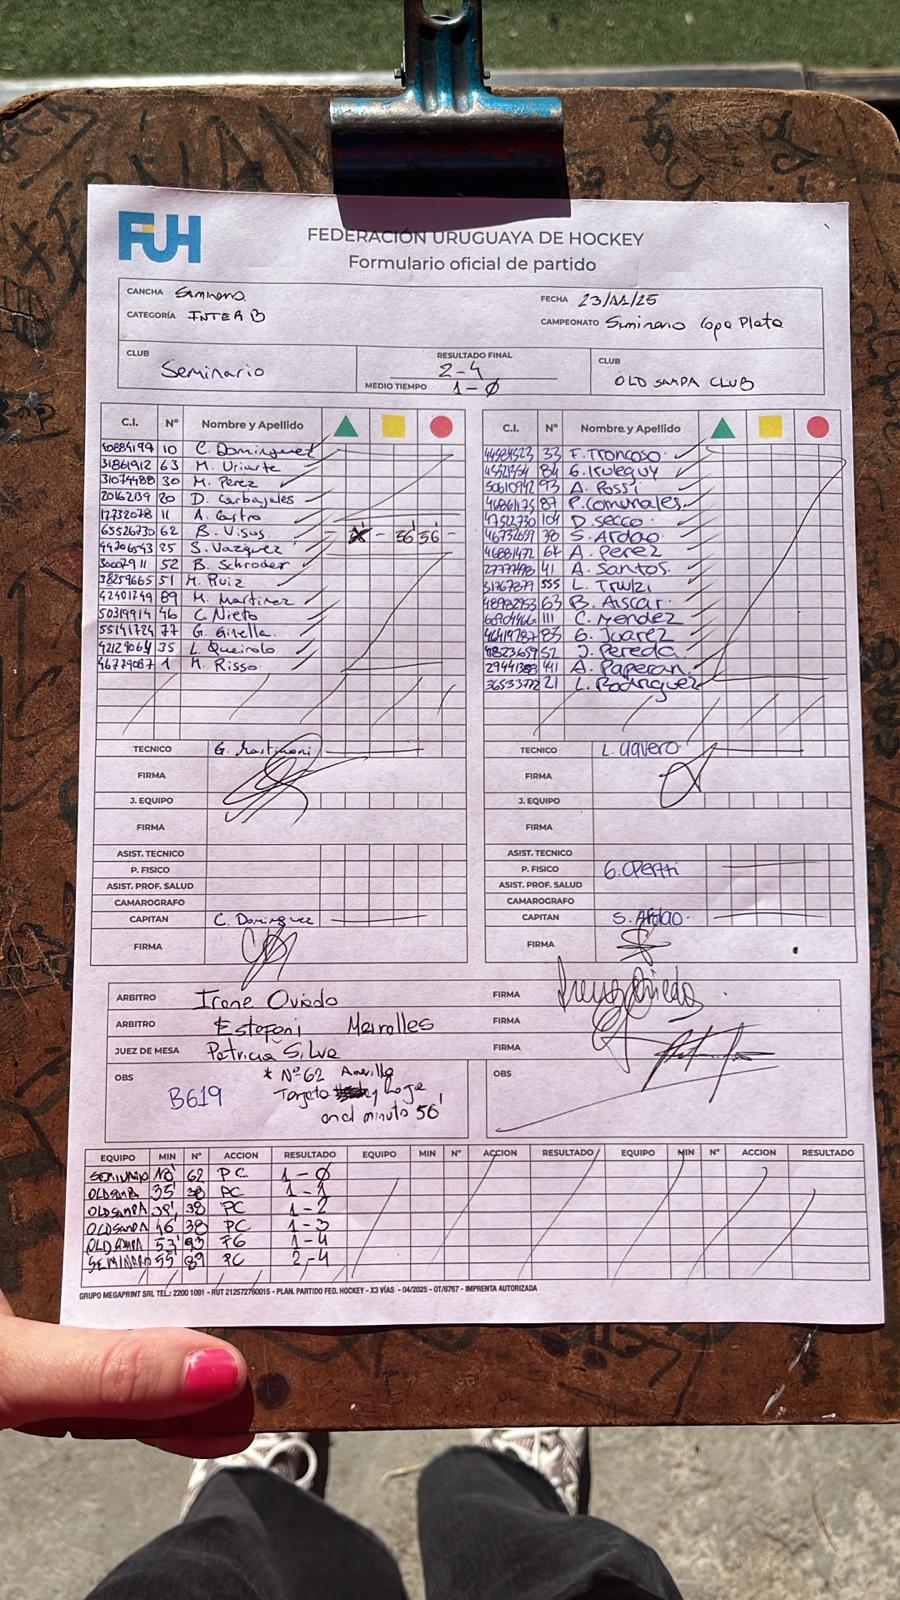 FUH
FEDERACIÓN URUGUAYA DE HOCKEY
Formulario oficial de partido
CANCHA Seminario
FECHA 23/11/25
CATEGORÍA INTER B
CAMPEONATO Seminario Copa Plata
CLUB Seminario
RESULTADO FINAL 2-4
MEDIO TIEMPO 1-0
CLUB OLD SAMPA CLUB
C.I. Nº Nombre y Apellido
10 C. Dominguez
31861912 63 M. Uriarte
31074488 30 M. Perez
20162139 20 D. Carbajales
12732078 11 A. Castro
65526730 62 B. Visus - 56' 56' -
44206543 25 S. Vazquez
52 B. Schroder
38259665 51 M. Ruiz
42401749 89 M. Martinez
50319914 46 C. Nieto
55141724 77 G. Ginella
42129064 35 L. Queirolo
46779087 1 M. Risso
TECNICO G.
FIRMA
J. EQUIPO
FIRMA
ASIST. TECNICO
P. FISICO
ASIST. PROF. SALUD
CAMAROGRAFO
CAPITAN C. Dominguez
FIRMA
C.I. Nº Nombre y Apellido
33 F. Troncoso
84 G. Iruleguy
93 A. Possi
87 P. Comunales
47512730 104 D. Secco
46732691 38 S. Ardao
46881472 64 A. Perez
27777498 41 A. Santos
555 L. Truzzi
63 B. Aiscar
111 C. Mendez
83 G. Juarez
48236591 52 J. Pereda
441 A. Paperan
36533772 21 L. Rodriguez
TECNICO L.
FIRMA
J. EQUIPO
FIRMA
ASIST. TECNICO
P. FISICO G.
ASIST. PROF. SALUD
CAMAROGRAFO
CAPITAN S. Ardao
FIRMA
ARBITRO Irene Oviedo FIRMA
ARBITRO Estefani Meirelles FIRMA
JUEZ DE MESA Patricia Silva FIRMA
OBS * Nº 62 Amarilla
B619 Tarjeta y Roja
en el minuto 56'
OBS
EQUIPO MIN Nº ACCION RESULTADO EQUIPO MIN Nº ACCION RESULTADO EQUIPO MIN Nº ACCION RESULTADO
SEMINARIO 10' 62 PC 1-0
OLD SAMPA 35' 38 PC 1-1
OLD SAMPA 39' 38 PC 1-2
OLD SAMPA 46' 38 PC 1-3
OLD SAMPA 53' 93 FG 1-4
SEMINARIO 55' 89 PC 2-4
GRUPO MEGAPRINT SRL TEL.: 2200 1091 - RUT 212572780015 - PLAN. PARTIDO FED. HOCKEY - X3 VÍAS - 04/2025 - OT/6767 - IMPRENTA AUTORIZADA